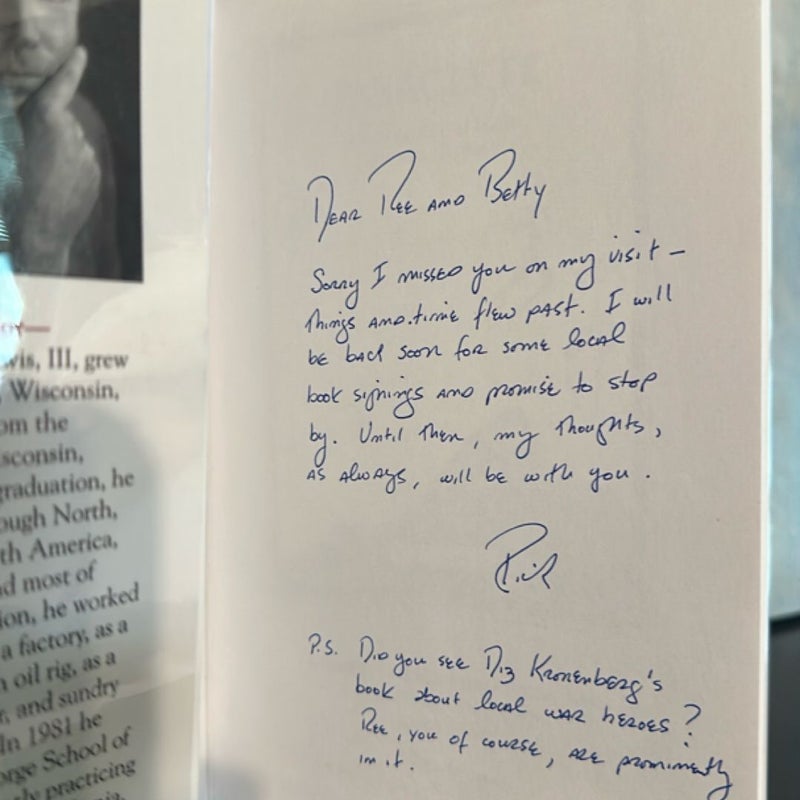 vis, III, grew
Wisconsin,
om the
sconsin,
graduation, he
ough North,
th America,
d most of
ion, he worked
a factory, as a
oil rig, as a
and sundry
In 1981 he
orge School of
ly practicing
Dear Ree and Betty
Sorry I missed you on my visit –
Things and time flew past. I will
be back soon for some local
book signings and promise to stop
by. Until then, my thoughts,
as always, will be with you.
Rick
P.S. Did you see Diz Kronenberg's
book about local war heroes?
Ree, you of course, are prominently
in it.